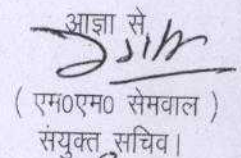 आज्ञा से
( एम0एम0 सेमवाल )
संयुक्त सचिव।